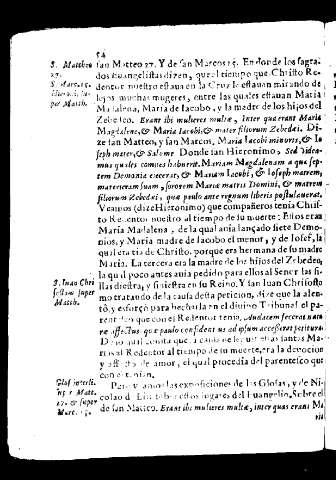 54
S. Mattheo
27.
S. Marc. 15.
san Matteo 27. Y de san Marcos 15. En donde los sagra
dos Euangelistas dizen, que al tiempo que Christo Re-
dentor nuestro estaua en la Cruz le estauan mirando de
lejos muchas mugeres, entre las quales estauan Maria
Madalena, Maria de Iacobo, y la madre de los hijos del
Zebedeo. Erant ibi mulieres multæ, Inter quæ erant Maria
Magdalene, & Maria Iacobi, & mater filiorum Zebedæi. Di
ze san Matteo, y san Marcos, Maria Iacobi minoris, & Io
seph mater, & Salome. Donde san Hieronimo, Sed videa-
mus quales comites habuerit, Mariam Magdalenam a qua sep-
tem Demonia eiecerat, & Mariam Iacobi, & Ioseph matrem,
materteram suam, sororem Mariæ matris Domini, & matrem
filiorum Zebedæi, quæ paulo ante regnum liberis postulauerat.
Veamos (dize Hieronimo) que compañeros tenia Chris-
to Redentor nuestro al tiempo de su muerte: Estos eran
Maria Madalena, de la qual auia lançado siete Demo-
nios, y Maria madre de Iacobo el menor, y de Iosef, la
qual era tia de Christo, porque era hermana de su madre
Maria. La tercera era la madre de los hijos del Zebedeo,
la qual poco antes auia pedido para ellos al Señor las si-
llas diestra, y siniestra en su Reyno. Y san Iuan Chrisosto
mo tratando de la causa desta peticion, dize que la alen-
tó, y esforçò para hecharla en el diuino Tribunal el pa-
rentesco que con el Redentor tenia, Audacem fecerat natu
ræ affectus
S. Iuan Chri
sostom super
Matth.
mo al Redentor al tiempo de su muerte, era la deuocion
y affecto de amor, el qual procedia del parentesco que
con el tenian.
Glos. interli.
27. & super
Marc. 15.
Pero veamos las exposiciones de las Glosas, y de Ni-
colao de Lira sobre estos lugares del Euangelio. Sobre el
de san Matteo. Erant ibi mulieres multæ, inter quas erant M